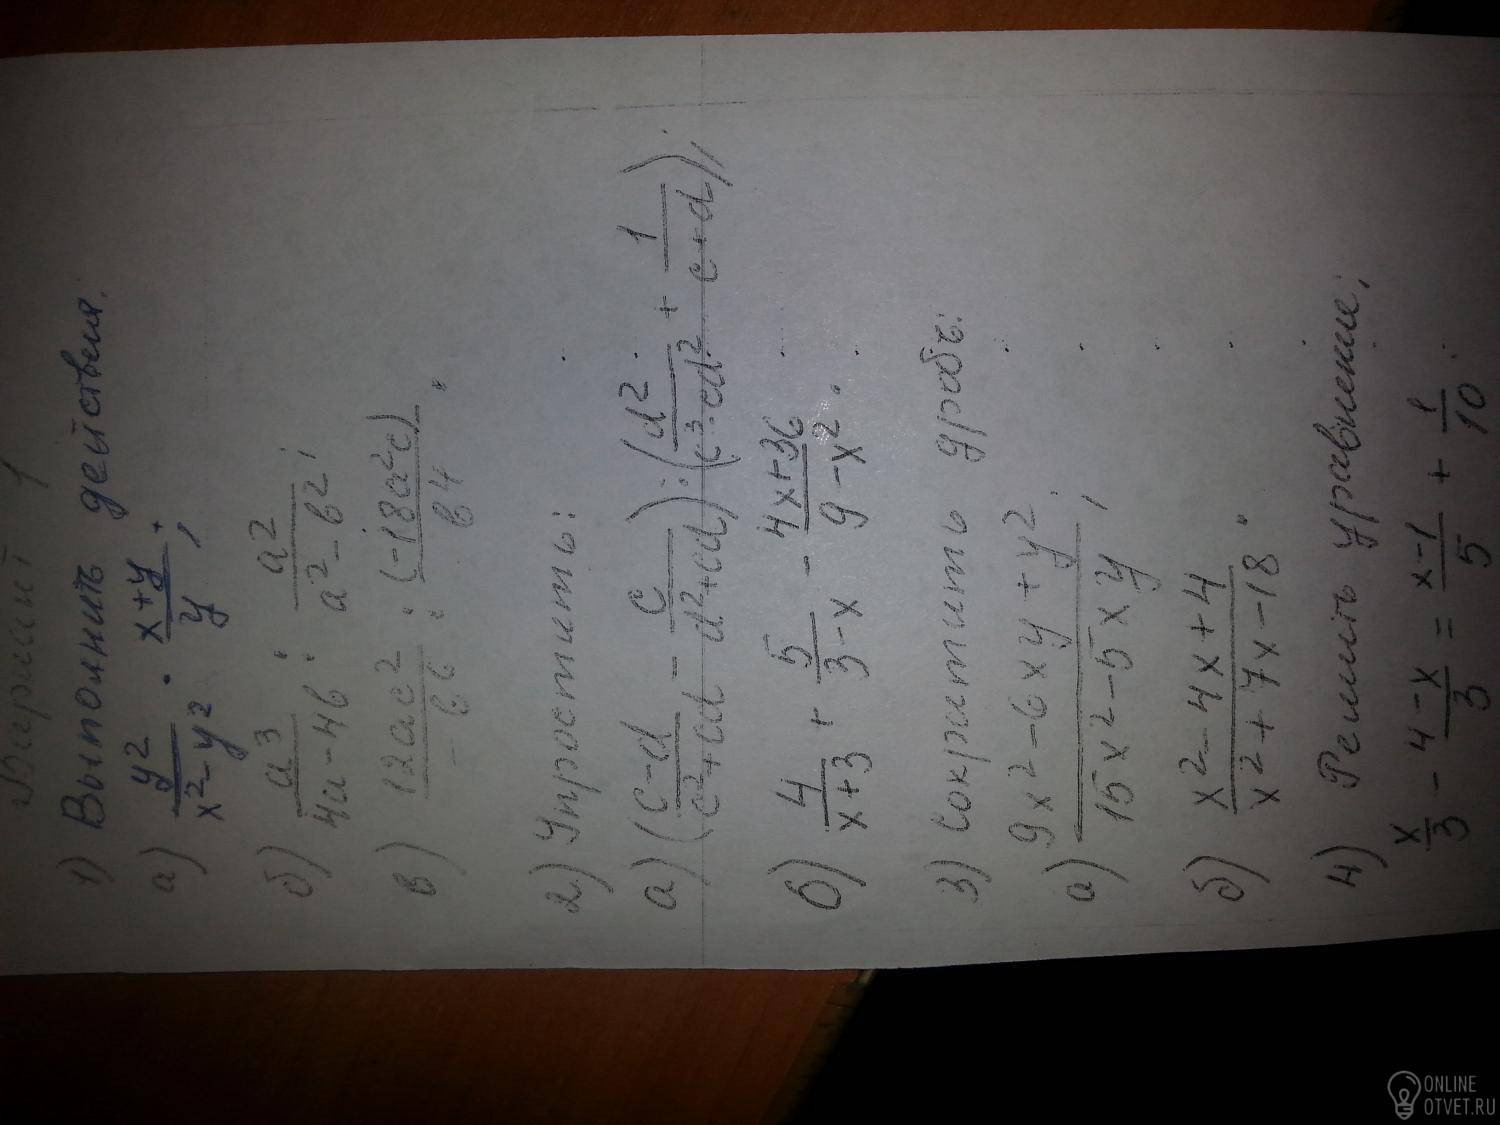 Вариант 1
1) Выполнить действия:
а) y²/(x²-y²) · (x+y)/y ;
б) a³/(4a-4в) : a²/(a²-в²) ;
в) 12ac²/-в6 : (-18a²c)/в4 .
2) Упростить:
а) ((c-d)/(c²+cd) - c/(d²+cd)) : (d²/(c³-cd²) + 1/(c+d)) ;
б) 4/(x+3) + 5/(3-x) - (4x+36)/(9-x²) .
3) Сократить дробь:
а) (9x²-6xy+y²)/(15x²-5xy) ;
б) (x²-4x+4)/(x²+7x-18) .
4) Решить уравнение;
x/3 - (4-x)/3 = (x-1)/5 + 1/10 .
ONLINE
OTVET.RU